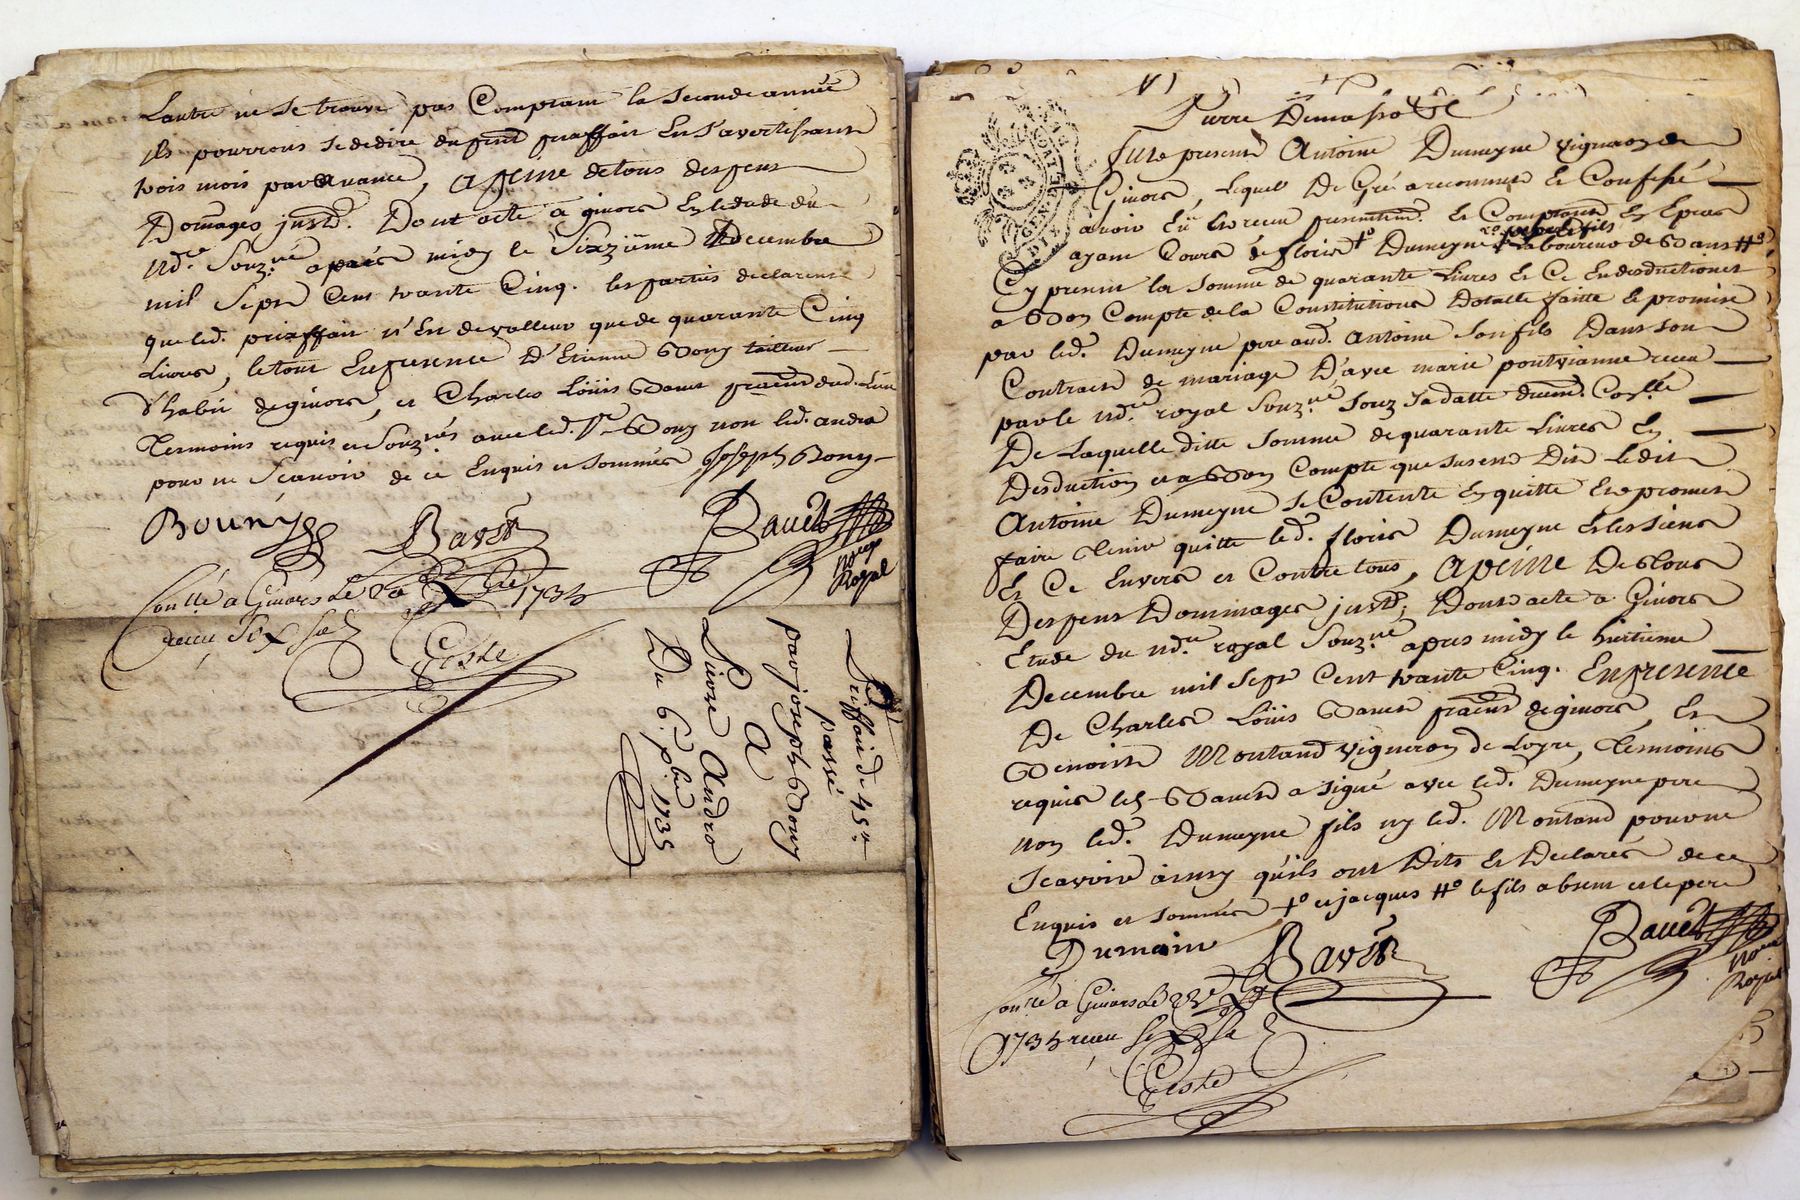 Lautre ne se trouve pas Comptant la seconde année
ils pourront se dedire du fnt priffait En s'avertissant
trois mois par avance, apeine de tous despens
Domages jnstz. Dont acte a givors Estude du
Nd.re Souz.né apres midy le Sixziéme Decembre
mil Sept Cent trante Cinq. les parties declarent
que led. priffait n'Est de valleur que de quarante Cinq
Livres, le tout En presence D'Etienne Bony tailleur
d'habit de givors, et Charles Loüis Bavet
Temoins requis et Souz.nés avec led. Bony non led. andra
pour ne Scavoir de ce Enquis et Sommés Joseph Bony
Bouny Bavet Bavet
no.re
Royal
Con.llé a Givors Le 20 Xbre 1735
receu Six Sols
Coste
Priffait de 45ll
passé
par joseph Bony
A
Pierre Andra
Du 6e Xbre 1735
GEN DE LYON
Pierre Demaso
fut present Antoine Dumeyne vigneron de
Givors, Lequel De Gré a reconnu Et Confessé
avoir Eü Et receu presentemt. Et Comptant En Especes
ayant Cours de floris +o Dumeyne Laboureur de Bans #o
Cy present la Somme de quarante Livres Et Ce En deduction et
a Bon Compte de la Constitution Dotalle faitte Et promise
par led. Dumeyne pere aud. Antoine Son fils Dans Son
Contract de mariage D'avec marie pontvianne receu
par le nd.re royal Souz.né Souz Sa datte
De Laquelle ditte Somme de quarante Livres En
Desduction et a Bon Compte que Susend Dit Ledit
Antoine Dumeyne Se Contente En quitte Et promet
faire Tenir quitte led. floris Dumeyne Et les Siens
Et Ce Envers et Contre tous, Apeine De tous
Despens Dommages jnstz; Dont acte a Givors
Etude du nd.re royal Souz.né apres midy le huitieme
Decembre mil Sept Cent trante Cinq. En presence
De Charles Loüis Bavet de givors, Et
Benoist Montand vigneron de Loyre, Temoins
requis led. Bavet a Signé avec led. Dumeyne pere
non led. Dumeyne fils ny led. Montand pour ne
Scavoir ainsy qu'ils ont Dits Et Declarés de ce
Enquis et Sommés +o et jacques #o le fils absent et le pere
Dumain Bavet Bavet
no.re
Royal
Con.llé a Givors Le 22e Xbre
1735 receu Six Sols
Coste